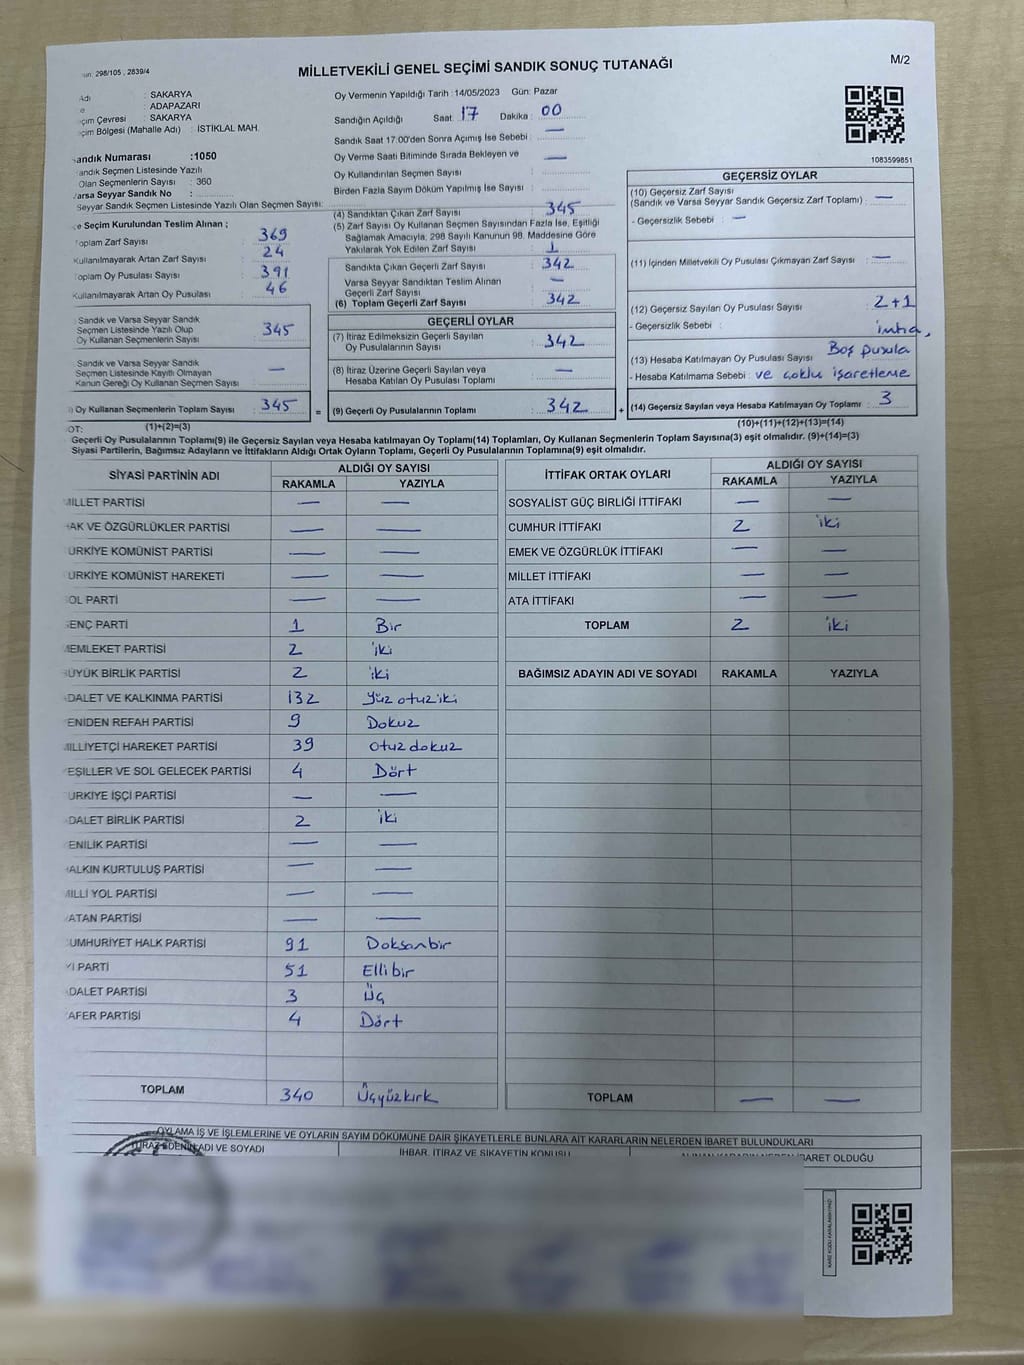 298/105 , 2839/4
MİLLETVEKİLİ GENEL SEÇİMİ SANDIK SONUÇ TUTANAĞI
M/2
Adı : SAKARYA
: ADAPAZARI
Seçim Çevresi : SAKARYA
Seçim Bölgesi (Mahalle Adı) : İSTİKLAL MAH.
Oy Vermenin Yapıldığı Tarih :14/05/2023 Gün: Pazar
Sandığın Açıldığı Saat 17 Dakika : 00
Sandık Saat 17:00'den Sonra Açımış İse Sebebi : —
Oy Verme Saati Bitiminde Sırada Bekleyen ve
Oy Kullandırılan Seçmen Sayısı : —
Birden Fazla Sayım Döküm Yapılmış İse Sayısı :
1083599851
Sandık Numarası :1050
Sandık Seçmen Listesinde Yazılı
Olan Seçmenlerin Sayısı : 360
Varsa Seyyar Sandık No :
Seyyar Sandık Seçmen Listesinde Yazılı Olan Seçmen Sayısı:
İlçe Seçim Kurulundan Teslim Alınan ;
Toplam Zarf Sayısı : 369
Kullanılmayarak Artan Zarf Sayısı : 24
Toplam Oy Pusulası Sayısı : 391
Kullanılmayarak Artan Oy Pusulası : 46
Sandık ve Varsa Seyyar Sandık
Seçmen Listesinde Yazılı Olup
Oy Kullanan Seçmenlerin Sayısı : 345
Sandık ve Varsa Seyyar Sandık
Seçmen Listesinde Kayıtlı Olmayan
Kanun Gereği Oy Kullanan Seçmen Sayısı : —
) Oy Kullanan Seçmenlerin Toplam Sayısı : 345 =
(1)+(2)=(3)
(4) Sandıktan Çıkan Zarf Sayısı : 345
(5) Zarf Sayısı Oy Kullanan Seçmen Sayısından Fazla İse, Eşitliği
Sağlamak Amacıyla, 298 Sayılı Kanunun 98. Maddesine Göre
Yakılarak Yok Edilen Zarf Sayısı : 1
Sandıkta Çıkan Geçerli Zarf Sayısı : 342
Varsa Seyyar Sandıktan Teslim Alınan
Geçerli Zarf Sayısı : —
(6) Toplam Geçerli Zarf Sayısı : 342
GEÇERLİ OYLAR
(7) İtiraz Edilmeksizin Geçerli Sayılan
Oy Pusulalarının Sayısı : 342
(8) İtiraz Üzerine Geçerli Sayılan veya
Hesaba Katılan Oy Pusulası Toplamı : —
(9) Geçerli Oy Pusulalarının Toplamı : 342 +
GEÇERSİZ OYLAR
(10) Geçersiz Zarf Sayısı
(Sandık ve Varsa Seyyar Sandık Geçersiz Zarf Toplamı) : —
- Geçersizlik Sebebi : —
(11) İçinden Milletvekili Oy Pusulası Çıkmayan Zarf Sayısı : —
(12) Geçersiz Sayılan Oy Pusulası Sayısı : 2+1
- Geçersizlik Sebebi : imha,
(13) Hesaba Katılmayan Oy Pusulası Sayısı : Boş pusula
- Hesaba Katılmama Sebebi : ve çoklu işaretleme
(14) Geçersiz Sayılan veya Hesaba Katılmayan Oy Toplamı : 3
(10)+(11)+(12)+(13)=(14)
NOT:
Geçerli Oy Pusulalarının Toplamı(9) ile Geçersiz Sayılan veya Hesaba katılmayan Oy Toplamı(14) Toplamları, Oy Kullanan Seçmenlerin Toplam Sayısına(3) eşit olmalıdır. (9)+(14)=(3)
Siyasi Partilerin, Bağımsız Adayların ve İttifakların Aldığı Ortak Oyların Toplamı, Geçerli Oy Pusulalarının Toplamına(9) eşit olmalıdır.
SİYASİ PARTİNİN ADI ALDIĞI OY SAYISI
RAKAMLA YAZIYLA
MİLLET PARTİSİ — —
HAK VE ÖZGÜRLÜKLER PARTİSİ — —
TÜRKİYE KOMÜNİST PARTİSİ — —
TÜRKİYE KOMÜNİST HAREKETİ — —
SOL PARTİ — —
GENÇ PARTİ 1 Bir
MEMLEKET PARTİSİ 2 iki
BÜYÜK BİRLİK PARTİSİ 2 iki
ADALET VE KALKINMA PARTİSİ 132 Yüz otuz iki
YENİDEN REFAH PARTİSİ 9 Dokuz
MİLLİYETÇİ HAREKET PARTİSİ 39 otuz dokuz
YEŞİLLER VE SOL GELECEK PARTİSİ 4 Dört
TÜRKİYE İŞÇİ PARTİSİ — —
ADALET BİRLİK PARTİSİ 2 iki
YENİLİK PARTİSİ — —
HALKIN KURTULUŞ PARTİSİ — —
MİLLİ YOL PARTİSİ — —
VATAN PARTİSİ — —
CUMHURİYET HALK PARTİSİ 91 Doksanbir
İYİ PARTİ 51 Ellibir
ADALET PARTİSİ 3 Üç
ZAFER PARTİSİ 4 Dört
TOPLAM 340 Üçyüzkırk
İTTİFAK ORTAK OYLARI ALDIĞI OY SAYISI
RAKAMLA YAZIYLA
SOSYALİST GÜÇ BİRLİĞİ İTTİFAKI — —
CUMHUR İTTİFAKI 2 iki
EMEK VE ÖZGÜRLÜK İTTİFAKI — —
MİLLET İTTİFAKI — —
ATA İTTİFAKI — —
TOPLAM 2 iki
BAĞIMSIZ ADAYIN ADI VE SOYADI RAKAMLA YAZIYLA
TOPLAM — —
OYLAMA İŞ VE İŞLEMLERİNE VE OYLARIN SAYIM DÖKÜMÜNE DAİR ŞİKAYETLERLE BUNLARA AİT KARARLARIN NELERDEN İBARET BULUNDUKLARI
İTİRAZ EDENİN ADI VE SOYADI İHBAR, İTİRAZ VE ŞİKAYETİN KONUSU ALINAN KARARIN NEDEN İBARET OLDUĞU
KARE KODU KARALAMAYINIZ!